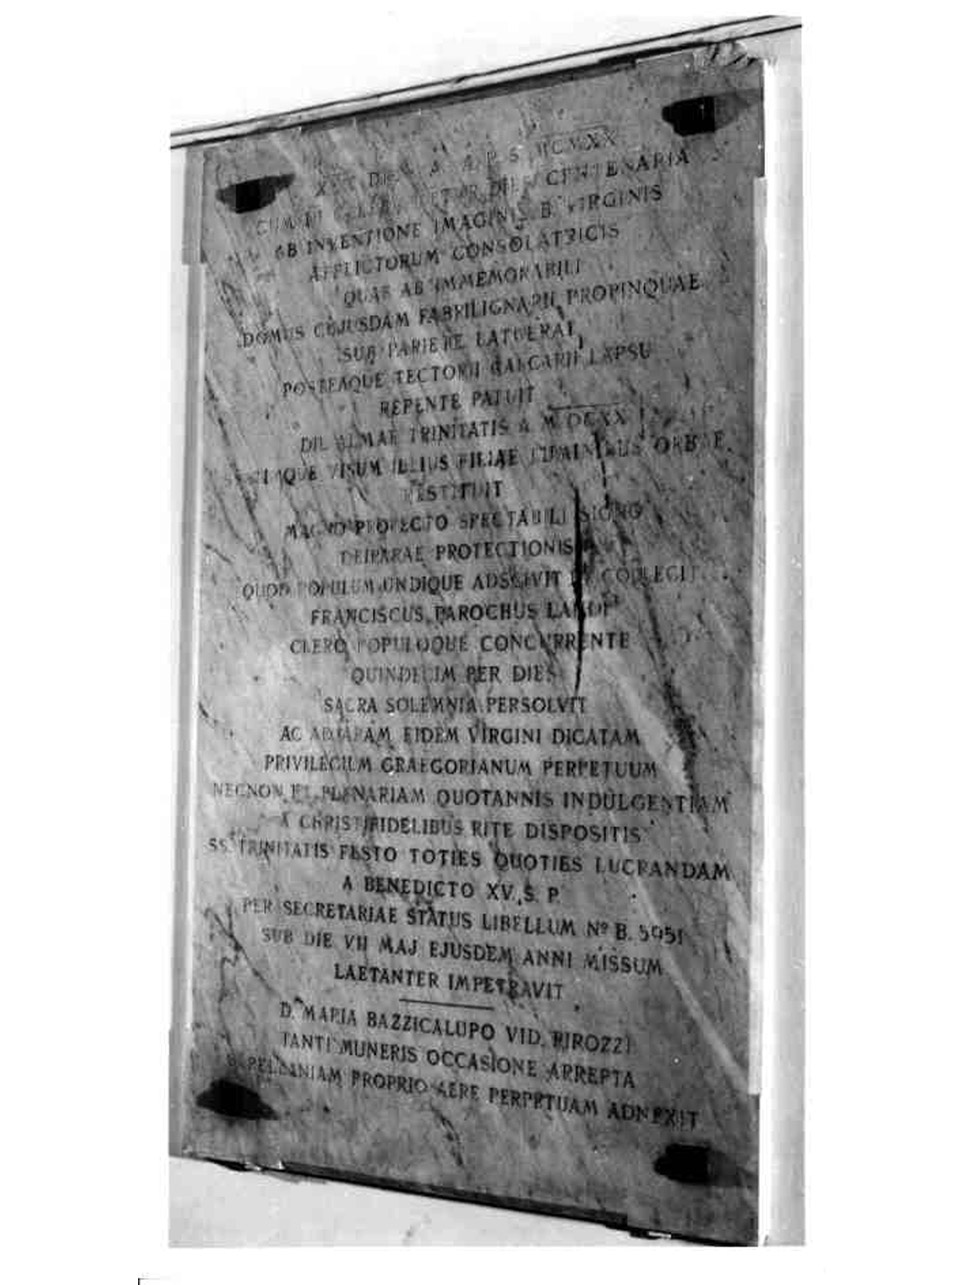 A. R. S. MCMXX
CENTENARIA
AB INVENTIONE IMAGINIS B. VIRGINIS
AFFLICTORUM CONSOLATRICIS
QUAE AB IMMEMORABILI
DOMUS CUJUSDAM FABRILIGNARII PROPINQUAE
SUB PARIETE LATUERAT
POSTEAQUE TECTORII CALCARII LAPSU
REPENTE PATUIT
DIE ALMAE TRINITATIS A. MDCXX
VISUM ILLIUS FILIAE LUMINIBUS ORBAE
RESTITUIT
MAGNO PROFECTO SPECTABILI SIGNO
DEIPARAE PROTECTIONIS
QUOD POPULUM UNDIQUE ADSCIVIT ET COLLEGIT
FRANCISCUS PAROCHUS LANDI
CLERO POPULOQUE CONCURRENTE
QUINDECIM PER DIES
SACRA SOLEMNIA PERSOLVIT
AC AD ARAM EIDEM VIRGINI DICATAM
PRIVILEGIUM GRAEGORIANUM PERPETUUM
NECNON ET PLENARIAM QUOTANNIS INDULGENTIAM
A CHRISTIFIDELIBUS RITE DISPOSITIS
SS. TRINITATIS FESTO TOTIES QUOTIES LUCRANDAM
A BENEDICTO XV. S. P.
PER SECRETARIAE STATUS LIBELLUM Nº B. 5051
SUB DIE VII MAJ EJUSDEM ANNI MISSUM
LAETANTER IMPETRAVIT
D. MARIA BAZZICALUPO VID. PIROZZI
TANTI MUNERIS OCCASIONE ARREPTA
PROPRIO AERE PERPETUAM ADNEXIT